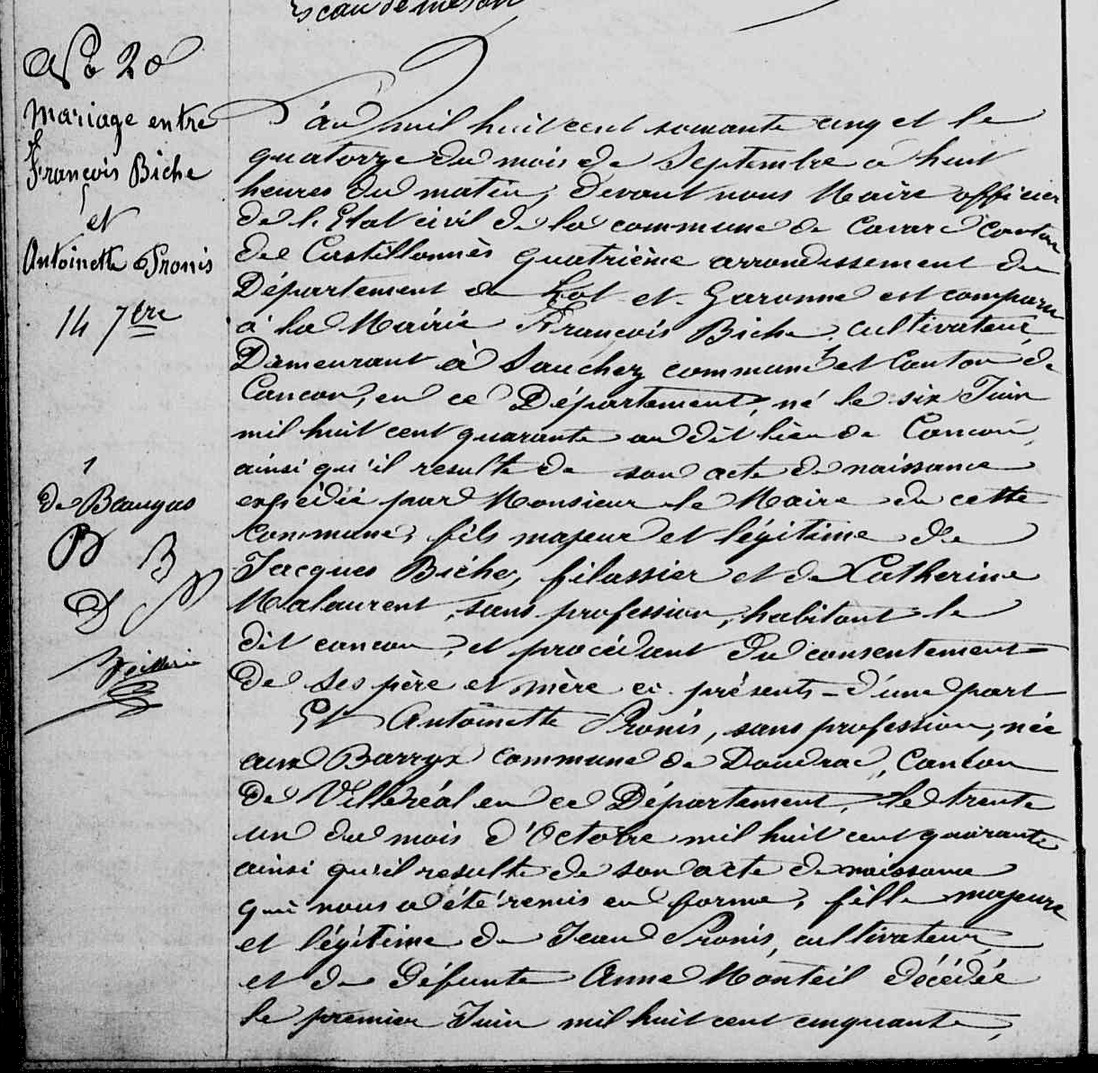 No 20
Mariage entre
François Biche
et
Antoinette Pronis
14 7bre
1
de Baugas
B B
D
L'an mil huit cent soixante cinq et le
quatorze du mois de Septembre à huit
heures du matin, devant nous Maire officier
de l'Etat civil de la commune de Cavarc canton
de Castillonnès quatrième arrondissement du
Département de Lot-et-Garonne est comparu
à la Mairie François Biche, cultivateur,
Demeurant à commune et Canton de
Cancon, en ce Département, né le six Juin
mil huit cent quarante au dit lieu de Cancon,
ainsi qu'il resulte de son acte de naissance
expédié par Monsieur le Maire de cette
Commune, fils majeur et légitime de
Jacques Biche, filassier et de Catherine
Malaurent, sans profession, habitant le
dit cancon, et procédant du consentement
de ses père et mère ici présents - d'une part
Et Antoinette Pronis, sans profession, née
aux Barrys commune de Doudrac, Canton
de Villeréal en ce Département, le trente
un du mois d'Octobre mil huit cent quarante
ainsi qu'il resulte de son acte de naissance
qui nous a été remis en forme, fille majeure
et légitime de Jean Pronis, cultivateur,
et de défunte Anne Monteil décédée
le premier Juin mil huit cent cinquante,